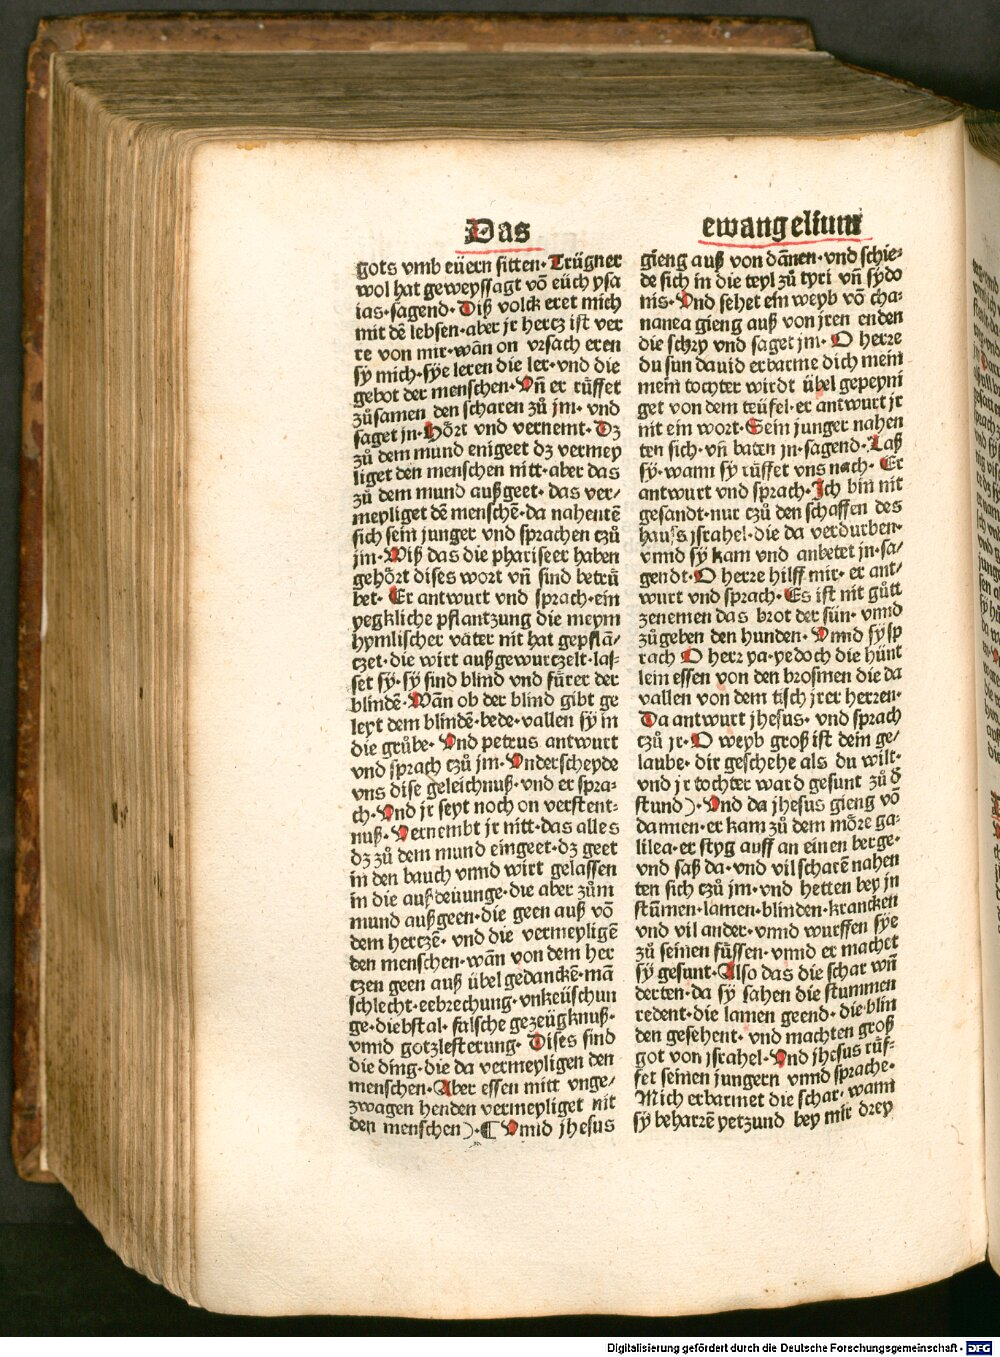 Das
ewangelium
gots vmb eüern sitten· Trügner
wol hat geweyssagt võ eüch ysa
ias·sagend·Diß volck eret mich
mit dẽ lebsen·aber jr hertz ist ver
re von mir·wãn on vrsach eren
sy mich·sye leren die ler·vnd die
gebot der menschen·Vñ er rüffet
zůsamen den scharen zů jm· vnd
saget jn·Hört vnd vernemt·Dz
zů dem mund enigeet dz vermey
liget den menschen nitt·aber das
zů dem mund außgeet· das ver⸗
meyliget dẽ menschẽ·da nahentẽ
sich sein junger vnd sprachen czů
jm·Wiß das die phariseer haben
gehört dises wort vñ sind betrü
bet· Er antwurt vnd sprach·ein
yegkliche pflantzung die meym
hymlischer vater nit hat gepflã⸗
czet·die wirt außgewurtzelt·las⸗
set sy·sy sind blind vnd fürer der
blindẽ·Wãn ob der blind gibt ge
leyt dem blindẽ·bede·vallen sy in
die grůbe· Vnd petrus antwurt
vnd sprach czů jm·Vnderscheyde
vns dise geleichnuß·vnd er spra⸗
ch·Vnd jr seyt noch on verstent⸗
nuß·Vernembt jr nitt·das alles
dz zů dem mund eingeet·dz geet
in den bauch vnnd wirt gelassen
in die außdeuunge·die aber zům
mund außgeen·die geen auß võ
dem hertzẽ· vnd die vermeyligẽ
den menschen·wãn von dem her
tzen geen auß übel gedanckẽ·mã
schlecht·eebrechung·vnkeüschun
ge·diebstal· falsche gezeügknuß·
vnnd gotzlesterung· Dises sind
die ding·die da vermeyligen den
menschen·Aber essen mitt vnge⸗
zwagen henden vermeyliget nit
den menschen)·¶ Vnnd jhesus
gieng auß von dãnen·vnd schie⸗
de sich in die teyl zů tyri vñ sydo
nis·Vnd sehet ein weyb võ cha⸗
nanea gieng auß von jren enden
die schry vnd saget jm· O herre
du sun dauid erbarme dich mein
mein tochter wirdt übel gepeyni
get von dem teüfel·er antwurt jr
nit ein wort·Sein junger nahen
ten sich·vñ baten jn·sagend·Laß
sy·wann sy rüffet vns nach· Er
antwurt vnd sprach·Ich bin nit
gesandt·nur czů den schaffen des
hauss jsrahel·die da verdurben·
vnnd sy kam vnd anbetet jn·sa⸗
gendt·O herre hilff mir· er ant⸗
wurt vnd sprach·Es ist nit gůtt
zenemen das brot der sün· vnnd
zůgeben den hunden· Vnnd sy sp
rach O herr ya·yedoch die hünt
lein essen von den brosmen die da
vallen von dem tisch jrer herren·
Da antwurt jhesus· vnd sprach
czů jr·O weyb groß ist dein ge⸗
laube· dir geschehe als du wilt·
vnd jr tochter ward gesunt zů ď
stund)·Vnd da jhesus gieng võ
dannen·er kam zů dem möre ga⸗
lilea·er styg auff an einen berge·
vnd saß da·vnd vil scharẽ nahen
ten sich czů jm·vnd hetten bey jn
stũmen·lamen·blinden·krancken
vnd vil ander·vnnd wurffen sye
zů seinen füssen·vnnd er machet
sy gesunt·Also das die schar wñ
derten·da sy sahen die stummen
redent·die lamen geend· die blin
den gesehent· vnd machten groß
got von jsrahel·Vnd jhesus rüf⸗
fet seinen jungern vnnd sprache·
Mich erbarmet die schar· wann
sy beharrẽ yetzund bey mir drey
Digitalisierung gefördert durch die Deutsche Forschungsgemeinschaft - DFG